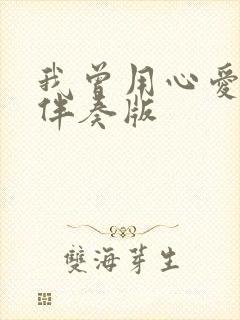 我曾用心愛
伴奏版
雙海芽生